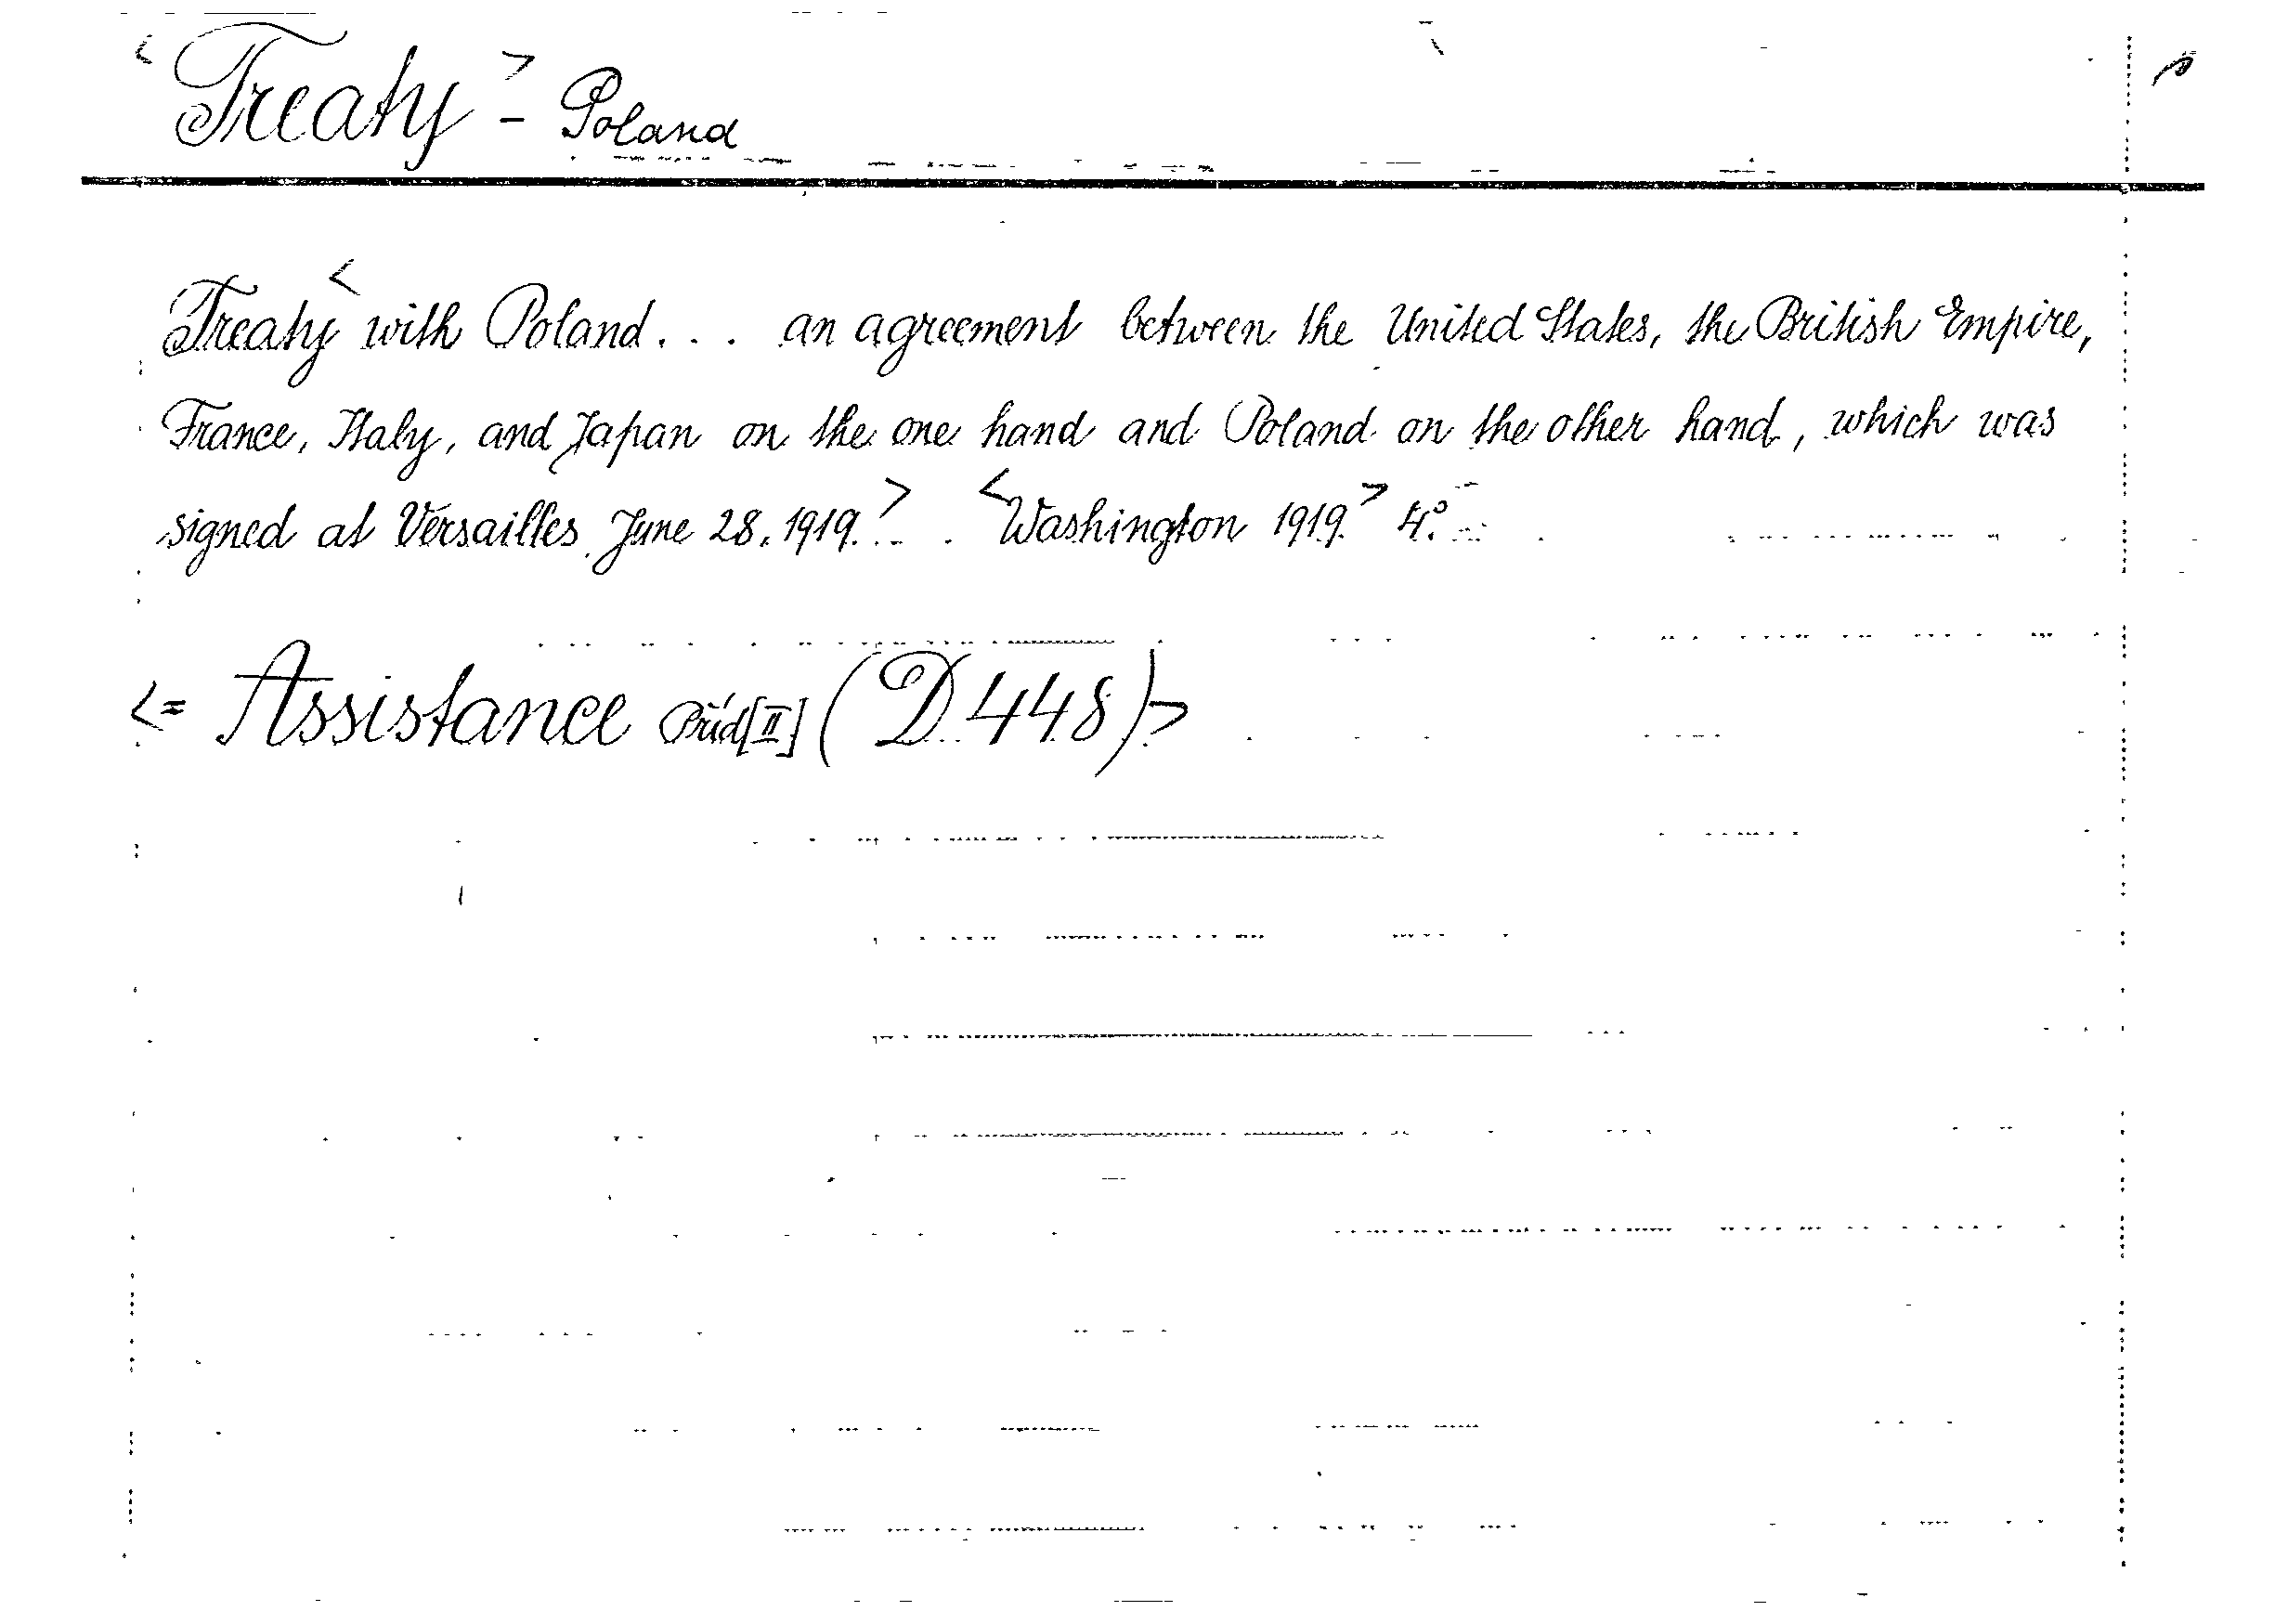 <Treaty> - Poland
Treaty < with Poland. . . an agreement between the United States, the British Empire,
France, Italy, and Japan on the one hand and Poland on the other hand, which was
signed at Versailles June 28, 1919.> <Washington 1919.> 4°.
<= Assistance Präd[II] (D 448)>